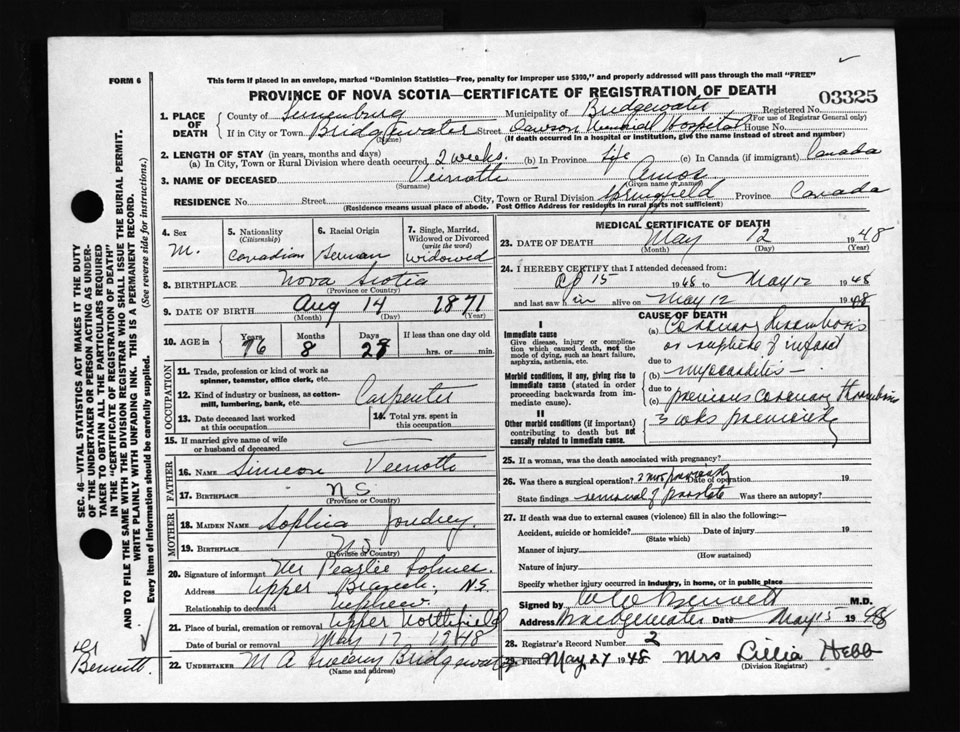 FORM 6
This form if placed in an envelope, marked "Dominion Statistics—Free, penalty for improper use $300," and properly addressed will pass through the mail "FREE"
PROVINCE OF NOVA SCOTIA—CERTIFICATE OF REGISTRATION OF DEATH
03325
1. PLACE OF DEATH
County of Lunenburg Municipality of Bridgewater Registered No.
(For use of Registrar General only)
If in City or Town Bridgewater Street Dawson Memorial Hospital House No.
(Name) (If death occurred in a hospital or institution, give the name instead of street and number)
2. LENGTH OF STAY (in years, months and days)
(a) In City, Town or Rural Division where death occurred, 2 weeks. (b) In Province life (c) In Canada (if immigrant) Canada
3. NAME OF DECEASED Veinotte Amos
(Surname) (Given name or names)
RESIDENCE No. Street City, Town or Rural Division Springfield Province Canada
(Residence means usual place of abode. Post Office Address for residents in rural parts not sufficient)
4. Sex
M.
5. Nationality
(Citizenship)
Canadian
6. Racial Origin
German
7. Single, Married, Widowed or Divorced
(write the word)
Widowed
8. BIRTHPLACE Nova Scotia
(Province or Country)
9. DATE OF BIRTH Aug 14 1871
(Month) (Day) (Year)
10. AGE in
Years
76
Months
8
Days
28
If less than one day old
hrs. or min.
OCCUPATION
11. Trade, profession or kind of work as spinner, teamster, office clerk, etc.
12. Kind of industry or business, as cotton-mill, lumbering, bank, etc.
Carpenter
13. Date deceased last worked at this occupation
14. Total yrs. spent in this occupation
15. If married give name of wife or husband of deceased
FATHER
16. NAME Simeon Veinotte
17. BIRTHPLACE N S
(Province or Country)
MOTHER
18. MAIDEN NAME Sophia Joudrey.
19. BIRTHPLACE N S
(Province or Country)
20. Signature of informant Mr Pearlie
Address Upper Branch, N.S.
Relationship to deceased nephew
21. Place of burial, cremation or removal Upper Northfield
Date of burial or removal May 17 1948
22. UNDERTAKER M A Sweeny Bridgewater
(Name and address)
MEDICAL CERTIFICATE OF DEATH
23. DATE OF DEATH May 12 1948
(Month) (Day) (Year)
24. I HEREBY CERTIFY that I attended deceased from:
Ap 15 1948 to May 12 1948
and last saw him alive on May 12 1948
CAUSE OF DEATH
I
Immediate cause
Give disease, injury or complication which caused death, not the mode of dying, such as heart failure, asphyxia, asthenia, etc.
Morbid conditions, if any, giving rise to immediate cause (stated in order proceeding backwards from immediate cause).
II
Other morbid conditions (if important) contributing to death but not causally related to immediate cause.
(a) Coronary thrombosis
or rupture of infarct
due to
(b) myocarditis —
due to
(c) previous coronary thrombosis
3 wks previously
25. If a woman, was the death associated with pregnancy?
26. Was there a surgical operation? 2 mos previously Date of operation 19
State findings removal of prostate Was there an autopsy?
27. If death was due to external causes (violence) fill in also the following:—
Accident, suicide or homicide? Date of injury 19
(State which)
Manner of injury
(How sustained)
Nature of injury
Specify whether injury occurred in industry, in home, or in public place
Signed by Bennett M.D.
Address Bridgewater Date May 15 1948
28. Registrar's Record Number 2
29. Filed May 27 1948 Mrs Lillia Hebb
(Division Registrar)
SEC. 46—VITAL STATISTICS ACT MAKES IT THE DUTY
OF THE UNDERTAKER OR PERSON ACTING AS UNDER-
TAKER TO OBTAIN ALL THE PARTICULARS REQUIRED
IN THE "CERTIFICATE OF REGISTRATION OF DEATH"
AND TO FILE THE SAME WITH THE DIVISION REGISTRAR WHO SHALL ISSUE THE BURIAL PERMIT.
WRITE PLAINLY WITH UNFADING INK. THIS IS A PERMANENT RECORD.
Every item of information should be carefully supplied. (See reverse side for instructions.)
Dr
Bennett